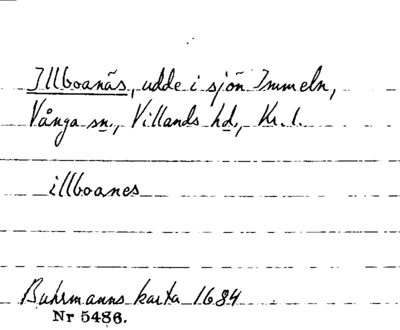 Illboanäs, udde i sjön Immeln,
Vånga sn., Villands hd, Kr. l.
illboanes
Buhrmanns karta 1684
Nr 5486.